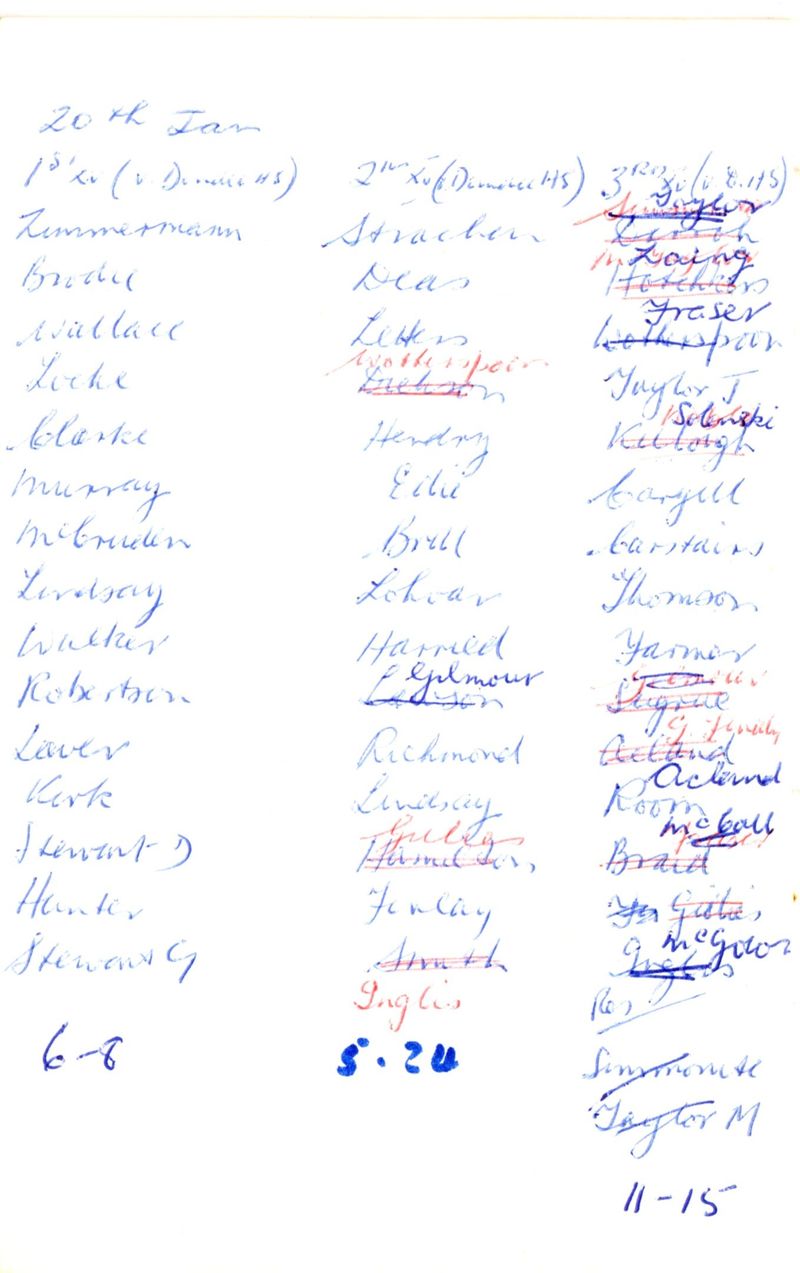 20th Jan
1st XV (v. Dundee HS)
Zimmermann
Brodie
Wallace
Locke
Clarke
Murray
McCruden
Lindsay
Walker
Robertson
Laver
Kirk
Stewart D
Hunter
Stewart G
6-8
2nd XV (Dundee HS)
Strachan
Deas
Letters
Wotherspoon
Dickson
Hendry
Edie
Brill
Lohoar
Harrield
Gilmour
Richmond
Lindsay
Gillies
Hamilton
Finlay
Smith
Inglis
5.24
3rd XV (v. D. HS)
Taylor
Laing
Hotchkiss
Fraser
Wotherspoon
Taylor J
Solenski
Cargill
Carstairs
Thomson
Farmer
Gilmour
G. Finlay
Acland
Acland
Room
McCall
Braid
Gillies
McGdoor
Inglis
Res
Simmonite
Taylor M
11-15